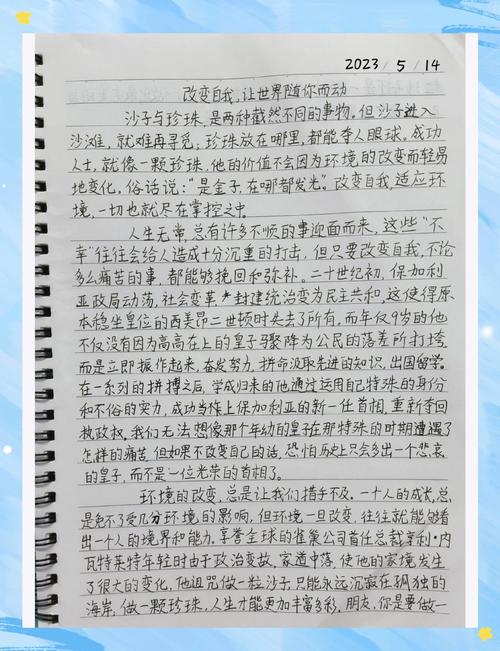 2023 / 5 / 14
改变自我，让世界随你而动
沙子与珍珠，是两种截然不同的事物。但沙子进入
沙滩，就难再寻觅；珍珠放在哪里，都能夺人眼球。成功
人士，就像一颗珍珠，他的价值不会因为环境的改变而轻易
地变化，俗话说："是金子，在哪都发光"。改变自我，适应环
境，一切也就尽在掌控之中。
人生无常，总有许多不顺的事迎面而来，这些"不
幸"往往会给人造成十分沉重的打击，但只要改变自我，不论
多么痛苦的事，都能够挽回和弥补。二十世纪初，保加利
亚政局动荡，社会变革，封建统治变为民主共和，这使得原
本稳坐皇位的西美昂二世顿时失去了所有，而年仅9岁的他
不仅没有因为高高在上的皇子骤降为公民的落差所打垮，
而是立即振作起来，奋发努力，拼命汲取先进的知识，出国留学。
在一系列的拼搏之后，学成归来的他通过运用自己特殊的身份
和不俗的实力，成功当作上保加利亚的新一任首相，重新夺回
执政权。我们无法想像那个年幼的皇子在那特殊的时期遭遇了
怎样的痛苦，但如果不改变自己的话，恐怕历史上只会多出一个悲哀
的皇子，而不是一位光荣的首相了。
环境的改变，总是让我们措手不及。一个人的成长，总
是免不了受几分环境的影响，但环境一旦改变，往往就能够看
出一个人的境界和能力。享誉全球的雀巢公司首任总裁亨利·内
瓦特莱特年轻时由于政治变故，家道中落，使他的家境发生
了很大的变化，他诅咒做一粒沙子，只能永远沉寂在孤独的
海岸；做一颗珍珠，人生才能更加丰富多彩。朋友，你是要做一